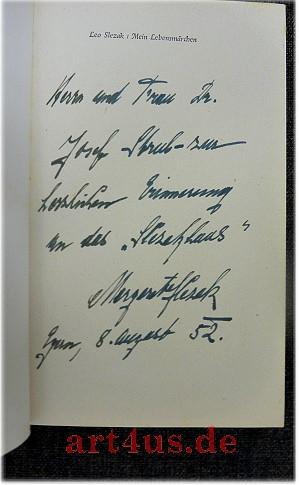 Leo Slezak : Mein Lebensmärchen
Herrn und Frau Dr.
Josef Strub – zur
herzlichen Erinnerung
an das „Slezakhaus"
Margarete Slezak
8. August 52.
art4us.de